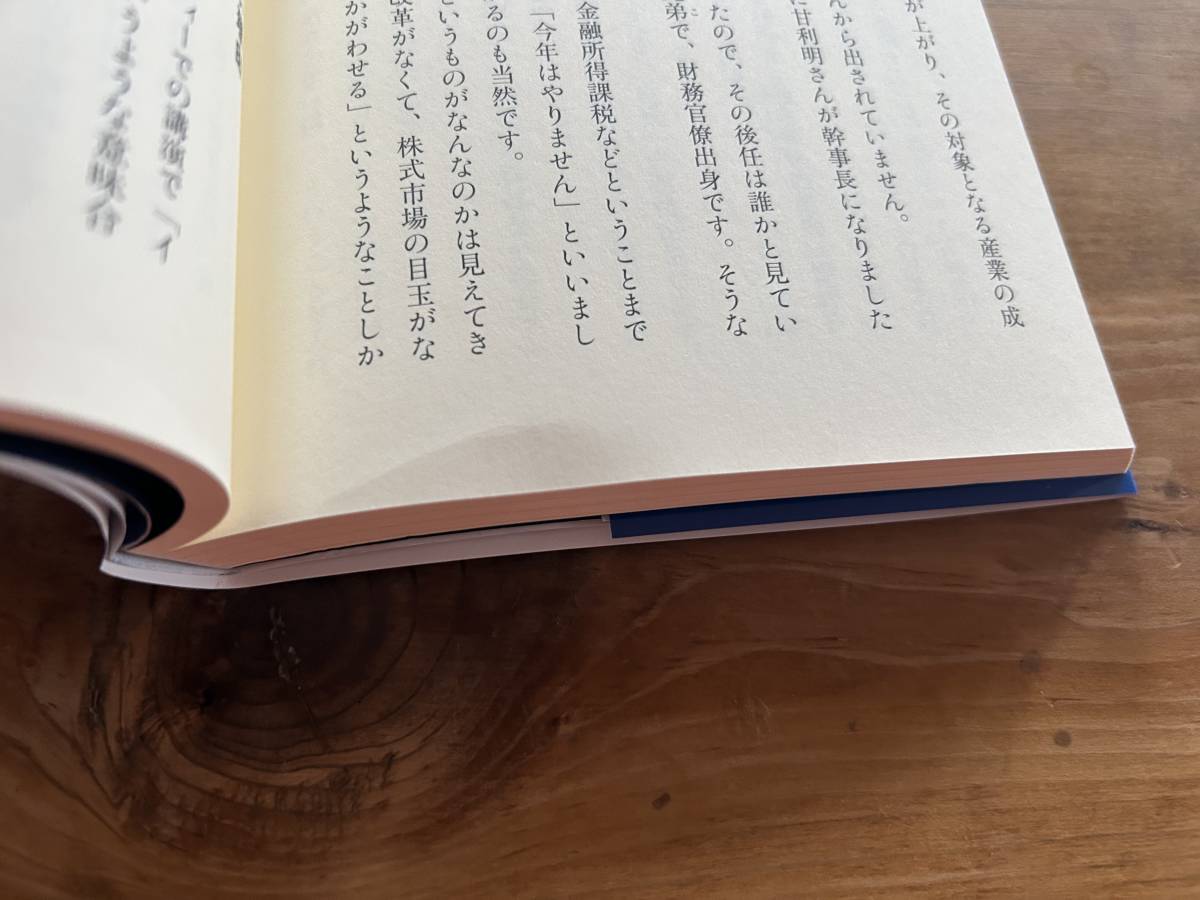 が上がり、その対象となる産業の成
んから出されていません。
に甘利明さんが幹事長になりました
たので、その後任は誰かと見てい
弟で、財務官僚出身です。そうな
金融所得課税などということまで
「今年はやりません」といいまし
るのも当然です。
というものがなんなのかは見えてき
改革がなくて、株式市場の目玉がな
かがわせる」というようなことしか
ーでの講演で「イ
うような意味合